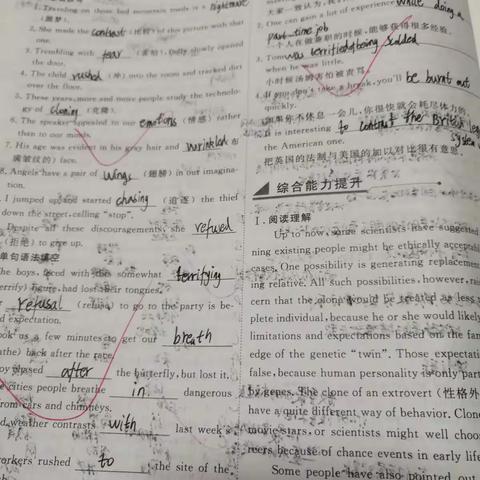 1. Traveling on those bad mountain roads is a nightmare
(噩梦).
2. She made the contrast (比较) of this picture with that
one.
3. Trembling with fear (害怕), Dolly slowly opened
the door.
4. The child rushed (冲) into the room and tracked dirt
over the floor.
5. These years, more and more people study the technolo-
gy of cloning (克隆).
6. The speaker appealed to our emotions (情感) rather
than to our minds.
7. His age was evident in his grey hair and wrinkled 布
满皱纹的) face.
8. Angels have a pair of wings (翅膀) in our imagina-
tion.
I jumped up and started chasing (追逐) the thief
down the street, calling "stop".
Despite all these discouragements, she refused
(拒绝) to give up.
单句语法填空
he boys, faced with the somewhat terrifying
terrify) figure, had lost their tongues.
refusal (refuse) to go to the party is be-
d expectation.
ook us a few minutes to get our breath
athe) back after the race.
oy chased after the butterfly, but lost it.
e cities people breathe in dangerous
rom cars and chimneys.
d weather contrasts with last week's
orkers rushed to the site of the
2. One can gain a lot of experience while doing a
part-time job
一个人在做兼职的时候,能够获得很多经验。
3. Tom was terrified of being scolded
when he was little.
小时候汤姆害怕被责骂。
4. If you don't take a break, you'll be burnt out
quickly.
如果你不休息一会儿,你很快就会耗尽体力的。
It is interesting to contrast the British legal
system with
the American one.
把英国的法制与美国的加以对比很有意思。
综合能力提升
Ⅰ. 阅读理解
Up to now, some scientists have suggested
ning existing people might be ethically acceptabl
cases. One possibility is generating replacemen
ing relative. All such possibilities, however, rai
cern that the clone would be treated as less
plete individual, because he or she would likely
limitations and expectations based on the fam
edge of the genetic "twin". Those expectati
false, because human personality is only part
by genes. The clone of an extrovert (性格外
have a quite different way of behavior. Clone
movie stars, or scientists might well choo
reers because of chance events in early life
Some people have also pointed out